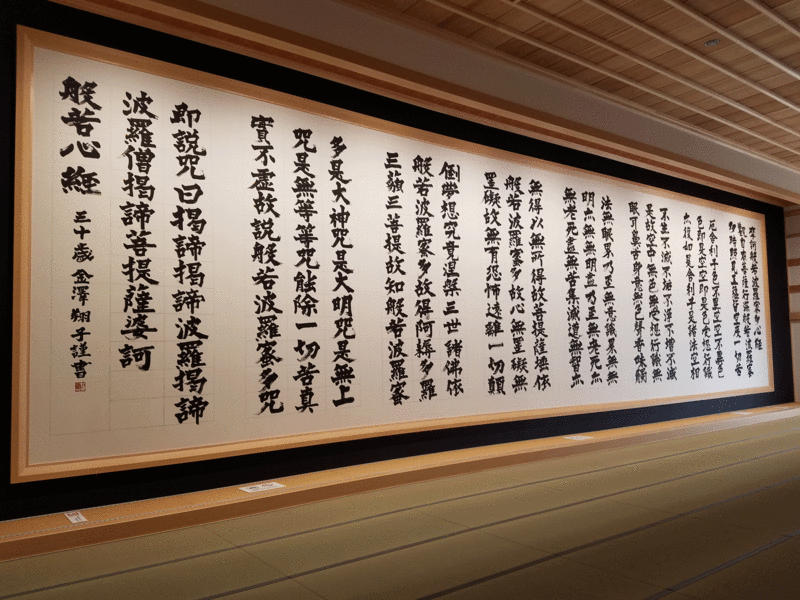 摩訶般若波羅蜜多心経
観自在菩薩行深般若波羅蜜
多時照見五蘊皆空度一切苦
厄舎利子色不異空空不異色
色即是空空即是色受想行識
亦復如是舎利子是諸法空相
不生不滅不垢不浄不増不減
是故空中無色無受想行識無
眼耳鼻舌身意無色聲香味觸
法無眼界乃至無意識界無無
明亦無無明盡乃至無老死亦
無老死盡無苦集滅道無智亦
無得以無所得故菩提薩埵依
般若波羅蜜多故心無罣礙無
罣礙故無有恐怖遠離一切顛
倒夢想究竟涅槃三世諸佛依
般若波羅蜜多故得阿耨多羅
三藐三菩提故知般若波羅蜜
多是大神咒是大明咒是無上
咒是無等等咒能除一切苦真
實不虚故説般若波羅蜜多咒
即説咒曰揭諦揭諦波羅揭諦
波羅僧揭諦菩提薩婆訶
般若心経 三十歳 金澤翔子謹書